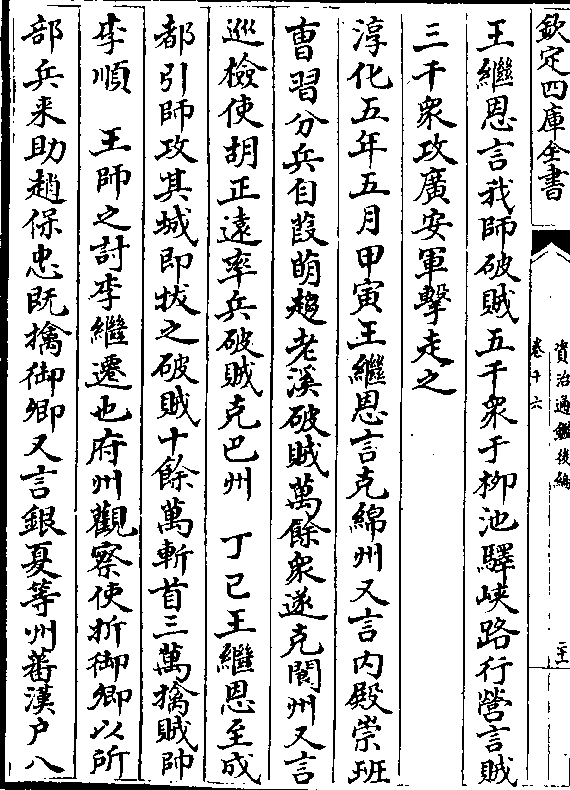 欽定四庫全書
資治通鑑後編
卷十六
二十一
王繼恩言我師破賊五千衆于柳池驛峽路行營言賊
三千衆攻廣安軍擊走之
淳化五年五月甲寅王繼恩言克綿州又言内殿崇班
曹習分兵自葭萌趨老溪破賊萬餘衆遂克閬州又言
巡檢使胡正遠率兵破賊克巴州　丁巳王繼恩至成
都引師攻其城即拔之破賊十餘萬斬首三萬擒賊帥
李順　王師之討李繼遷也府州觀察使折御卿以所
部兵来助趙保忠既擒御卿又言銀夏等州蕃漢户八